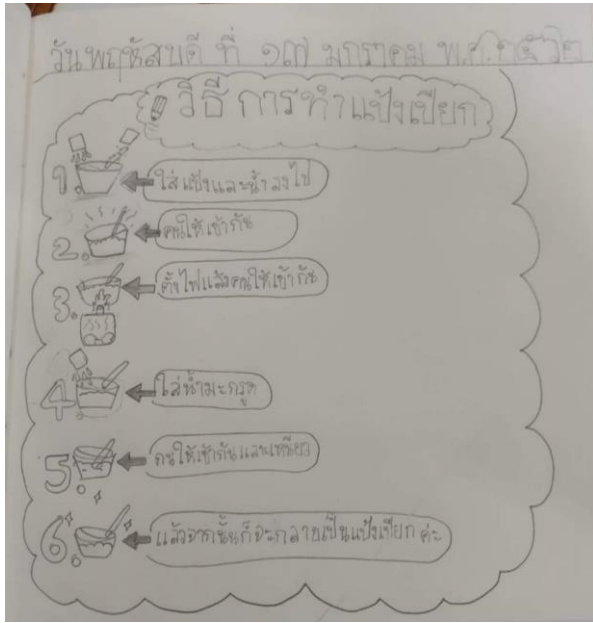 วันพฤหัสบดี ที่ ๑๗ มกราคม พ.ศ.๒๕๖๒
วิธีการทำแป้งเปียก
1. ใส่แป้งและน้ำลงไป
2. คนให้เข้ากัน
3. ตั้งไฟแล้วคนให้เข้ากัน
4. ใส่น้ำมะกรูด
5. คนให้เข้ากันและเหนียว
6. แล้วจากนั้นก็จะกลายเป็นแป้งเปียกค่ะ